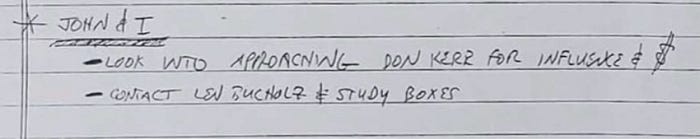 * JOHN & I
- LOOK INTO APPROACHING DON KERR FOR INFLUENCE & $
- CONTACT LEN BUCHOLZ & STUDY BOXES